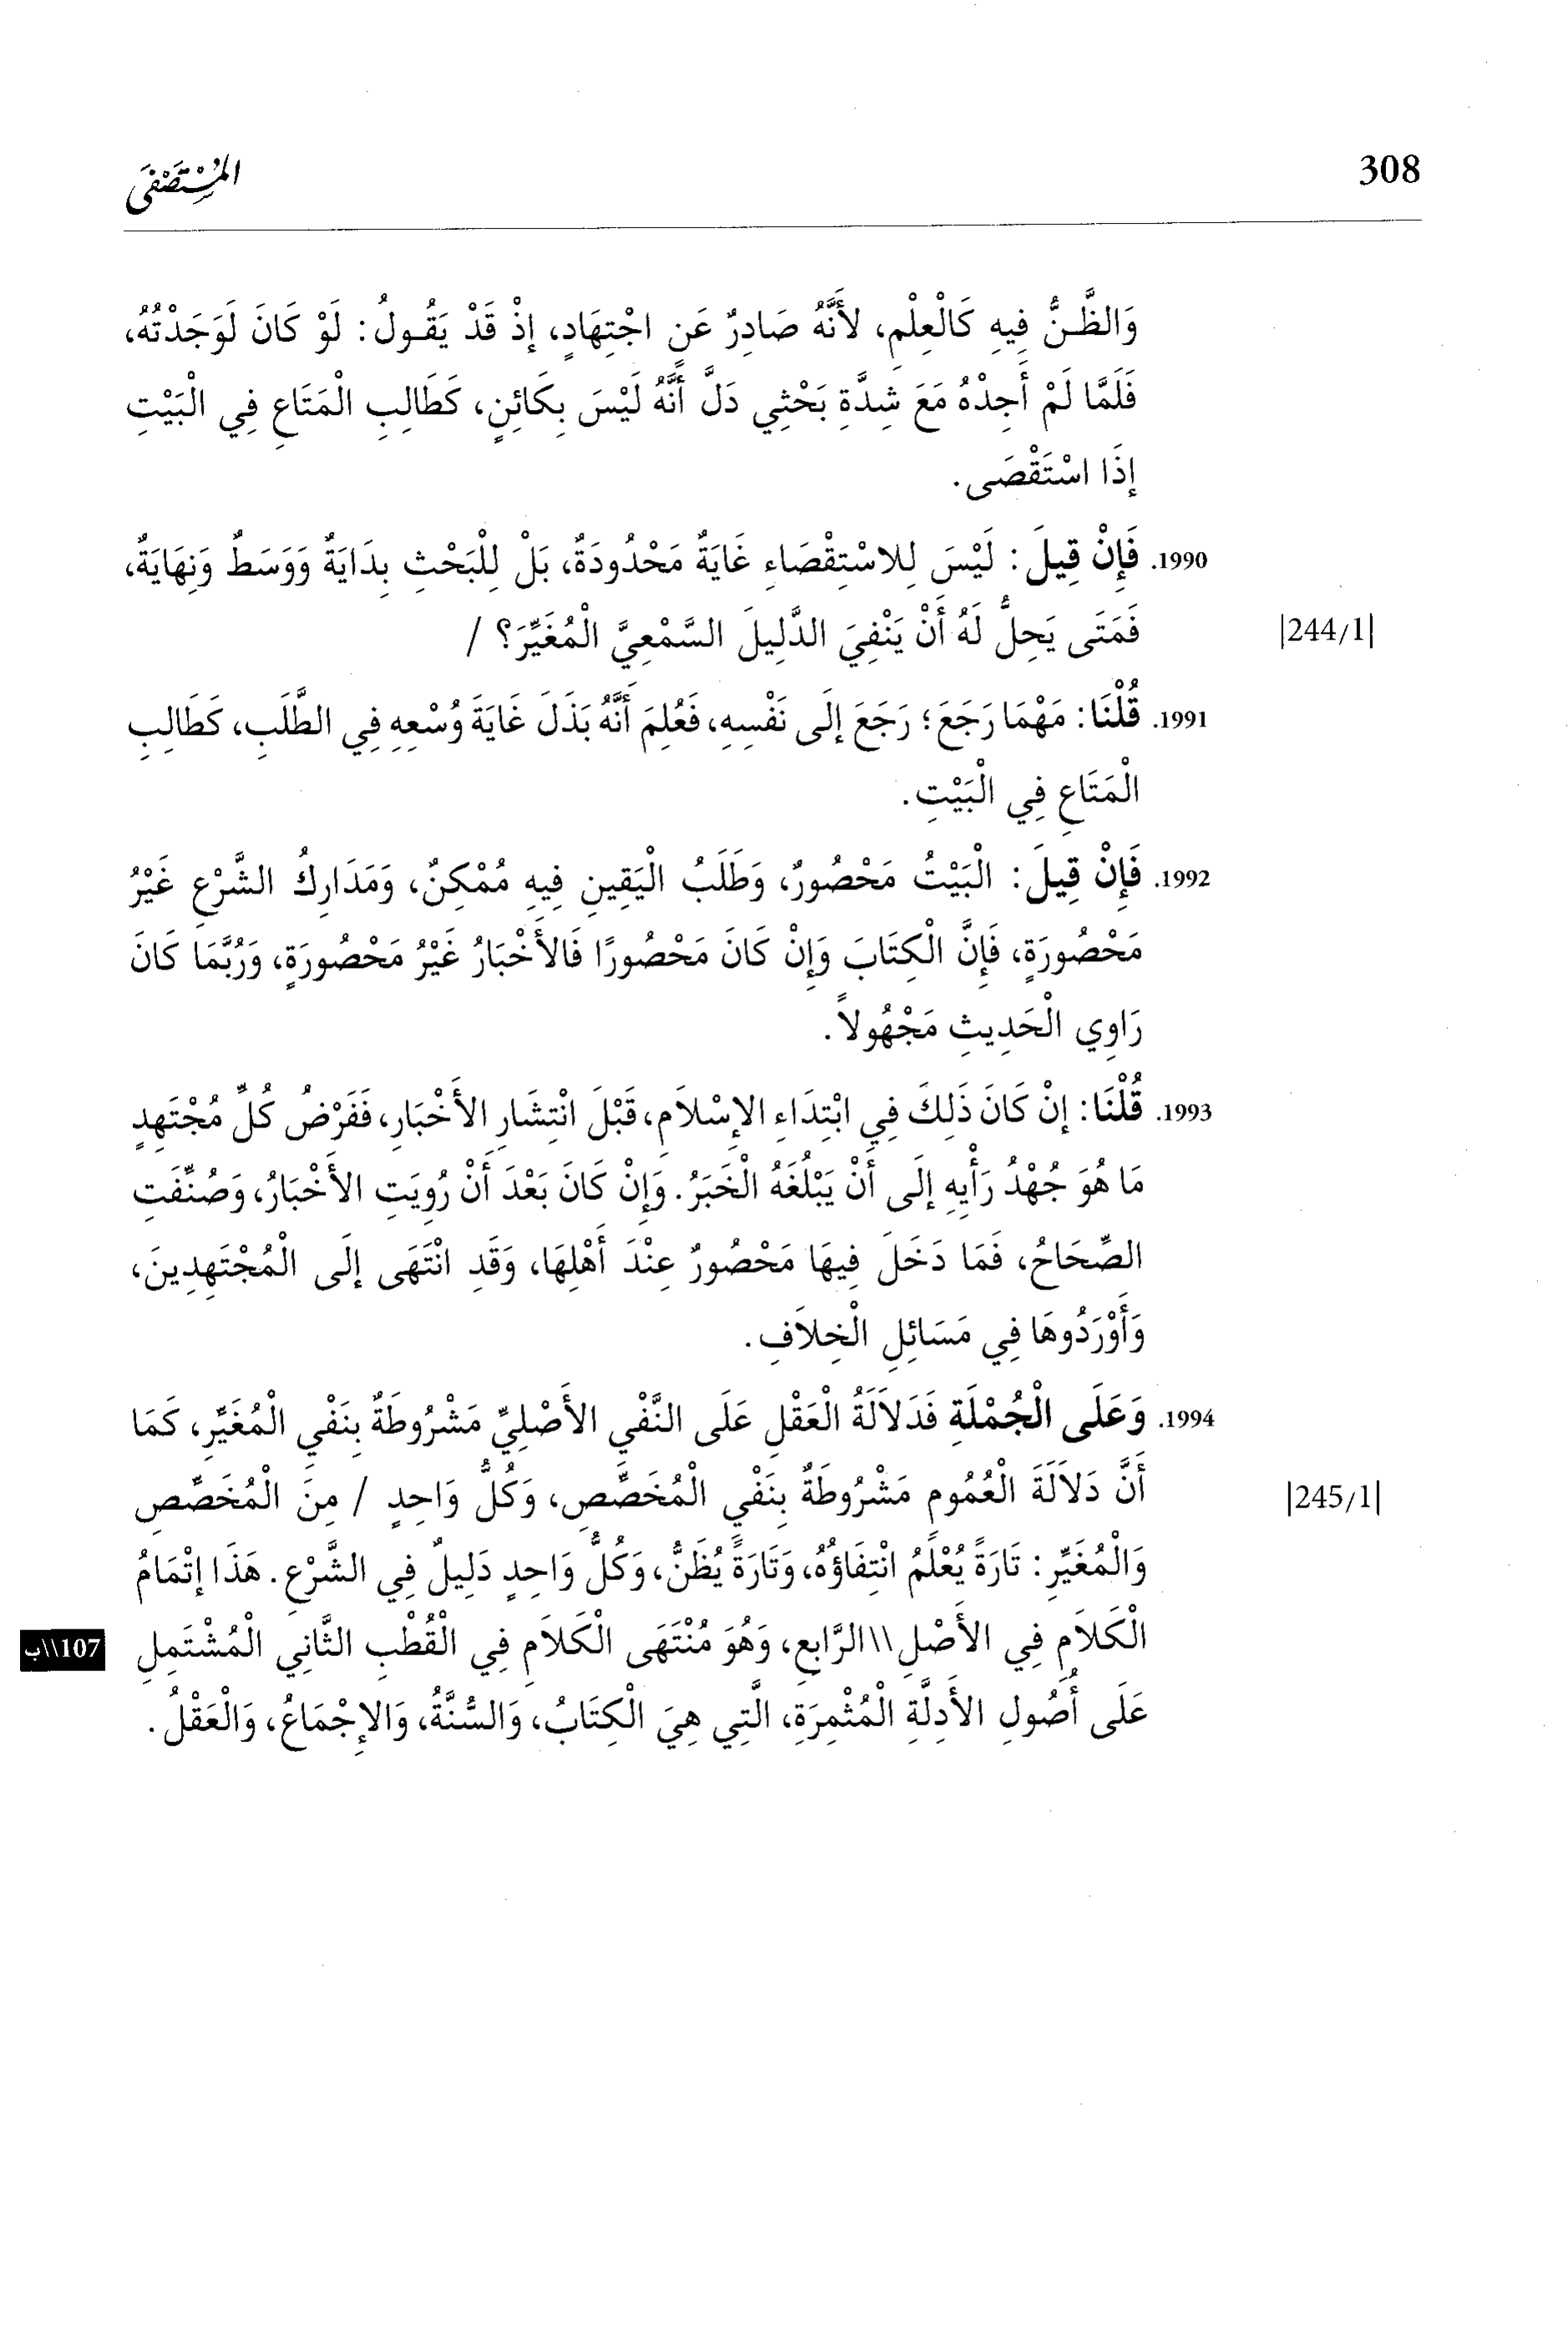 308
المُسْتَصْفَى
وَالظَّنُّ فِيهِ كَالْعِلْمِ، لأَنَّهُ صَادِرٌ عَنِ اجْتِهَادٍ، إِذْ قَدْ يَقُولُ: لَوْ كَانَ لَوَجَدْتُهُ،
فَلَمَّا لَمْ أَجِدْهُ مَعَ شِدَّةِ بَحْثِي دَلَّ أَنَّهُ لَيْسَ بِكَائِنٍ، كَطَالِبِ الْمَتَاعِ فِي الْبَيْتِ
إِذَا اسْتَقْصَى.
1990. فَإِنْ قِيلَ: لَيْسَ لِلاسْتِقْصَاءِ غَايَةٌ مَحْدُودَةٌ، بَلْ لِلْبَحْثِ بِدَايَةٌ وَوَسَطٌ وَنِهَايَةٌ،
فَمَتَى يَحِلُّ لَهُ أَنْ يَنْفِيَ الدَّلِيلَ السَّمْعِيَّ الْمُغَيِّرَ؟ /
|244/1|
1991. قُلْنَا: مَهْمَا رَجَعَ؛ رَجَعَ إِلَى نَفْسِهِ، فَعُلِمَ أَنَّهُ بَذَلَ غَايَةَ وُسْعِهِ فِي الطَّلَبِ، كَطَالِبِ
الْمَتَاعِ فِي الْبَيْتِ.
1992. فَإِنْ قِيلَ: الْبَيْتُ مَحْصُورٌ، وَطَلَبُ الْيَقِينِ فِيهِ مُمْكِنٌ، وَمَدَارِكُ الشَّرْعِ غَيْرُ
مَحْصُورَةٍ، فَإِنَّ الْكِتَابَ وَإِنْ كَانَ مَحْصُورًا فَالأَخْبَارُ غَيْرُ مَحْصُورَةٍ، وَرُبَّمَا كَانَ
رَاوِي الْحَدِيثِ مَجْهُولاً.
1993. قُلْنَا: إِنْ كَانَ ذَلِكَ فِي ابْتِدَاءِ الإِسْلاَمِ، قَبْلَ انْتِشَارِ الأَخْبَارِ، فَفَرْضُ كُلِّ مُجْتَهِدٍ
مَا هُوَ جُهْدُ رَأْيِهِ إِلَى أَنْ يَبْلُغَهُ الْخَبَرُ. وَإِنْ كَانَ بَعْدَ أَنْ رُوِيَتِ الأَخْبَارُ، وَصُنِّفَتِ
الصِّحَاحُ، فَمَا دَخَلَ فِيهَا مَحْصُورٌ عِنْدَ أَهْلِهَا، وَقَدِ انْتَهَى إِلَى الْمُجْتَهِدِينَ،
وَأَوْرَدُوهَا فِي مَسَائِلِ الْخِلاَفِ.
1994. وَعَلَى الْجُمْلَةِ فَدَلاَلَةُ الْعَقْلِ عَلَى النَّفْيِ الأَصْلِيِّ مَشْرُوطَةٌ بِنَفْيِ الْمُغَيِّرِ، كَمَا
أَنَّ دَلاَلَةَ الْعُمُومِ مَشْرُوطَةٌ بِنَفْيِ الْمُخَصِّصِ، وَكُلُّ وَاحِدٍ / مِنَ الْمُخَصِّصِ
|245/1|
وَالْمُغَيِّرِ: تَارَةً يُعْلَمُ انْتِفَاؤُهُ، وَتَارَةً يُظَنُّ، وَكُلُّ وَاحِدٍ دَلِيلٌ فِي الشَّرْعِ. هَذَا إِتْمَامُ
الْكَلاَمِ فِي الأَصْلِ \\ الرَّابِعِ، وَهُوَ مُنْتَهَى الْكَلاَمِ فِي الْقُطْبِ الثَّانِي الْمُشْتَمِلِ
107\\ب
عَلَى أُصُولِ الأَدِلَّةِ الْمُثْمِرَةِ، الَّتِي هِيَ الْكِتَابُ، وَالسُّنَّةُ، وَالإِجْمَاعُ، وَالْعَقْلُ.